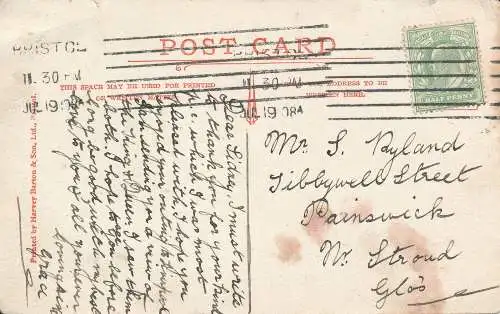 POST CARD
THIS SPACE MAY BE USED FOR PRINTED
ADDRESS TO BE
WRITTEN HERE.
BRISTOL
11.30 PM
JUL 19 08
11.30 PM
JUL 19 08
HALF PENNY
Printed by Harvey Barton & Son, Ltd.,
Dear Sidney, I must write
to thank you for your kind
P.C. which I was most
pleased with, I hope you
enjoyed your outing to
I am sending you a view of
the King & Queen, I saw them
both. I hope to
long be good
love to you & all
from
Grace
Mr S. Ryland
Tibbywell Street
Painswick
Nr. Stroud
Glos